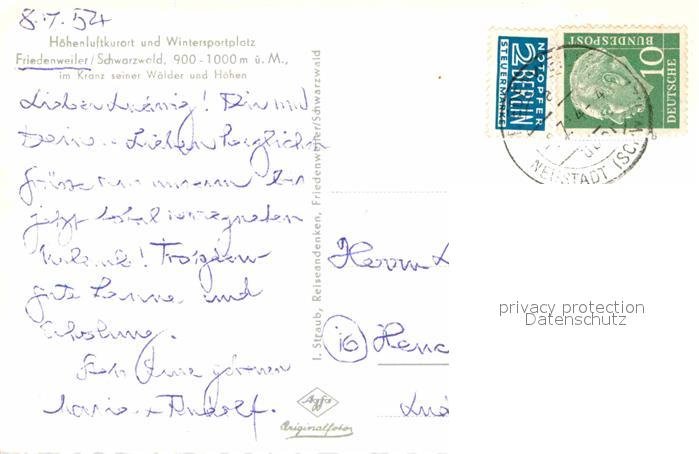 8.7.54
Höhenluftkurort und Wintersportplatz
Friedenweiler/Schwarzwald, 900-1000 m ü. M.,
im Kranz seiner Wälder und Höhen
Dir und
Deinen Lieben herzliche
Grüsse von unserem bis
jetzt total verregneten
Urlaub! Trotzdem
gute Laune und
Erholung.
Maria + Rudolf.
I. Straub, Reiseandenken, Friedenweiler/Schwarzwald
Agfa
Originalfoto
NOTOPFER
2 BERLIN
STEUERMARKE
DEUTSCHE
BUNDESPOST
10
NEUSTADT (SCHW
Herrn
16
privacy protection
Datenschutz